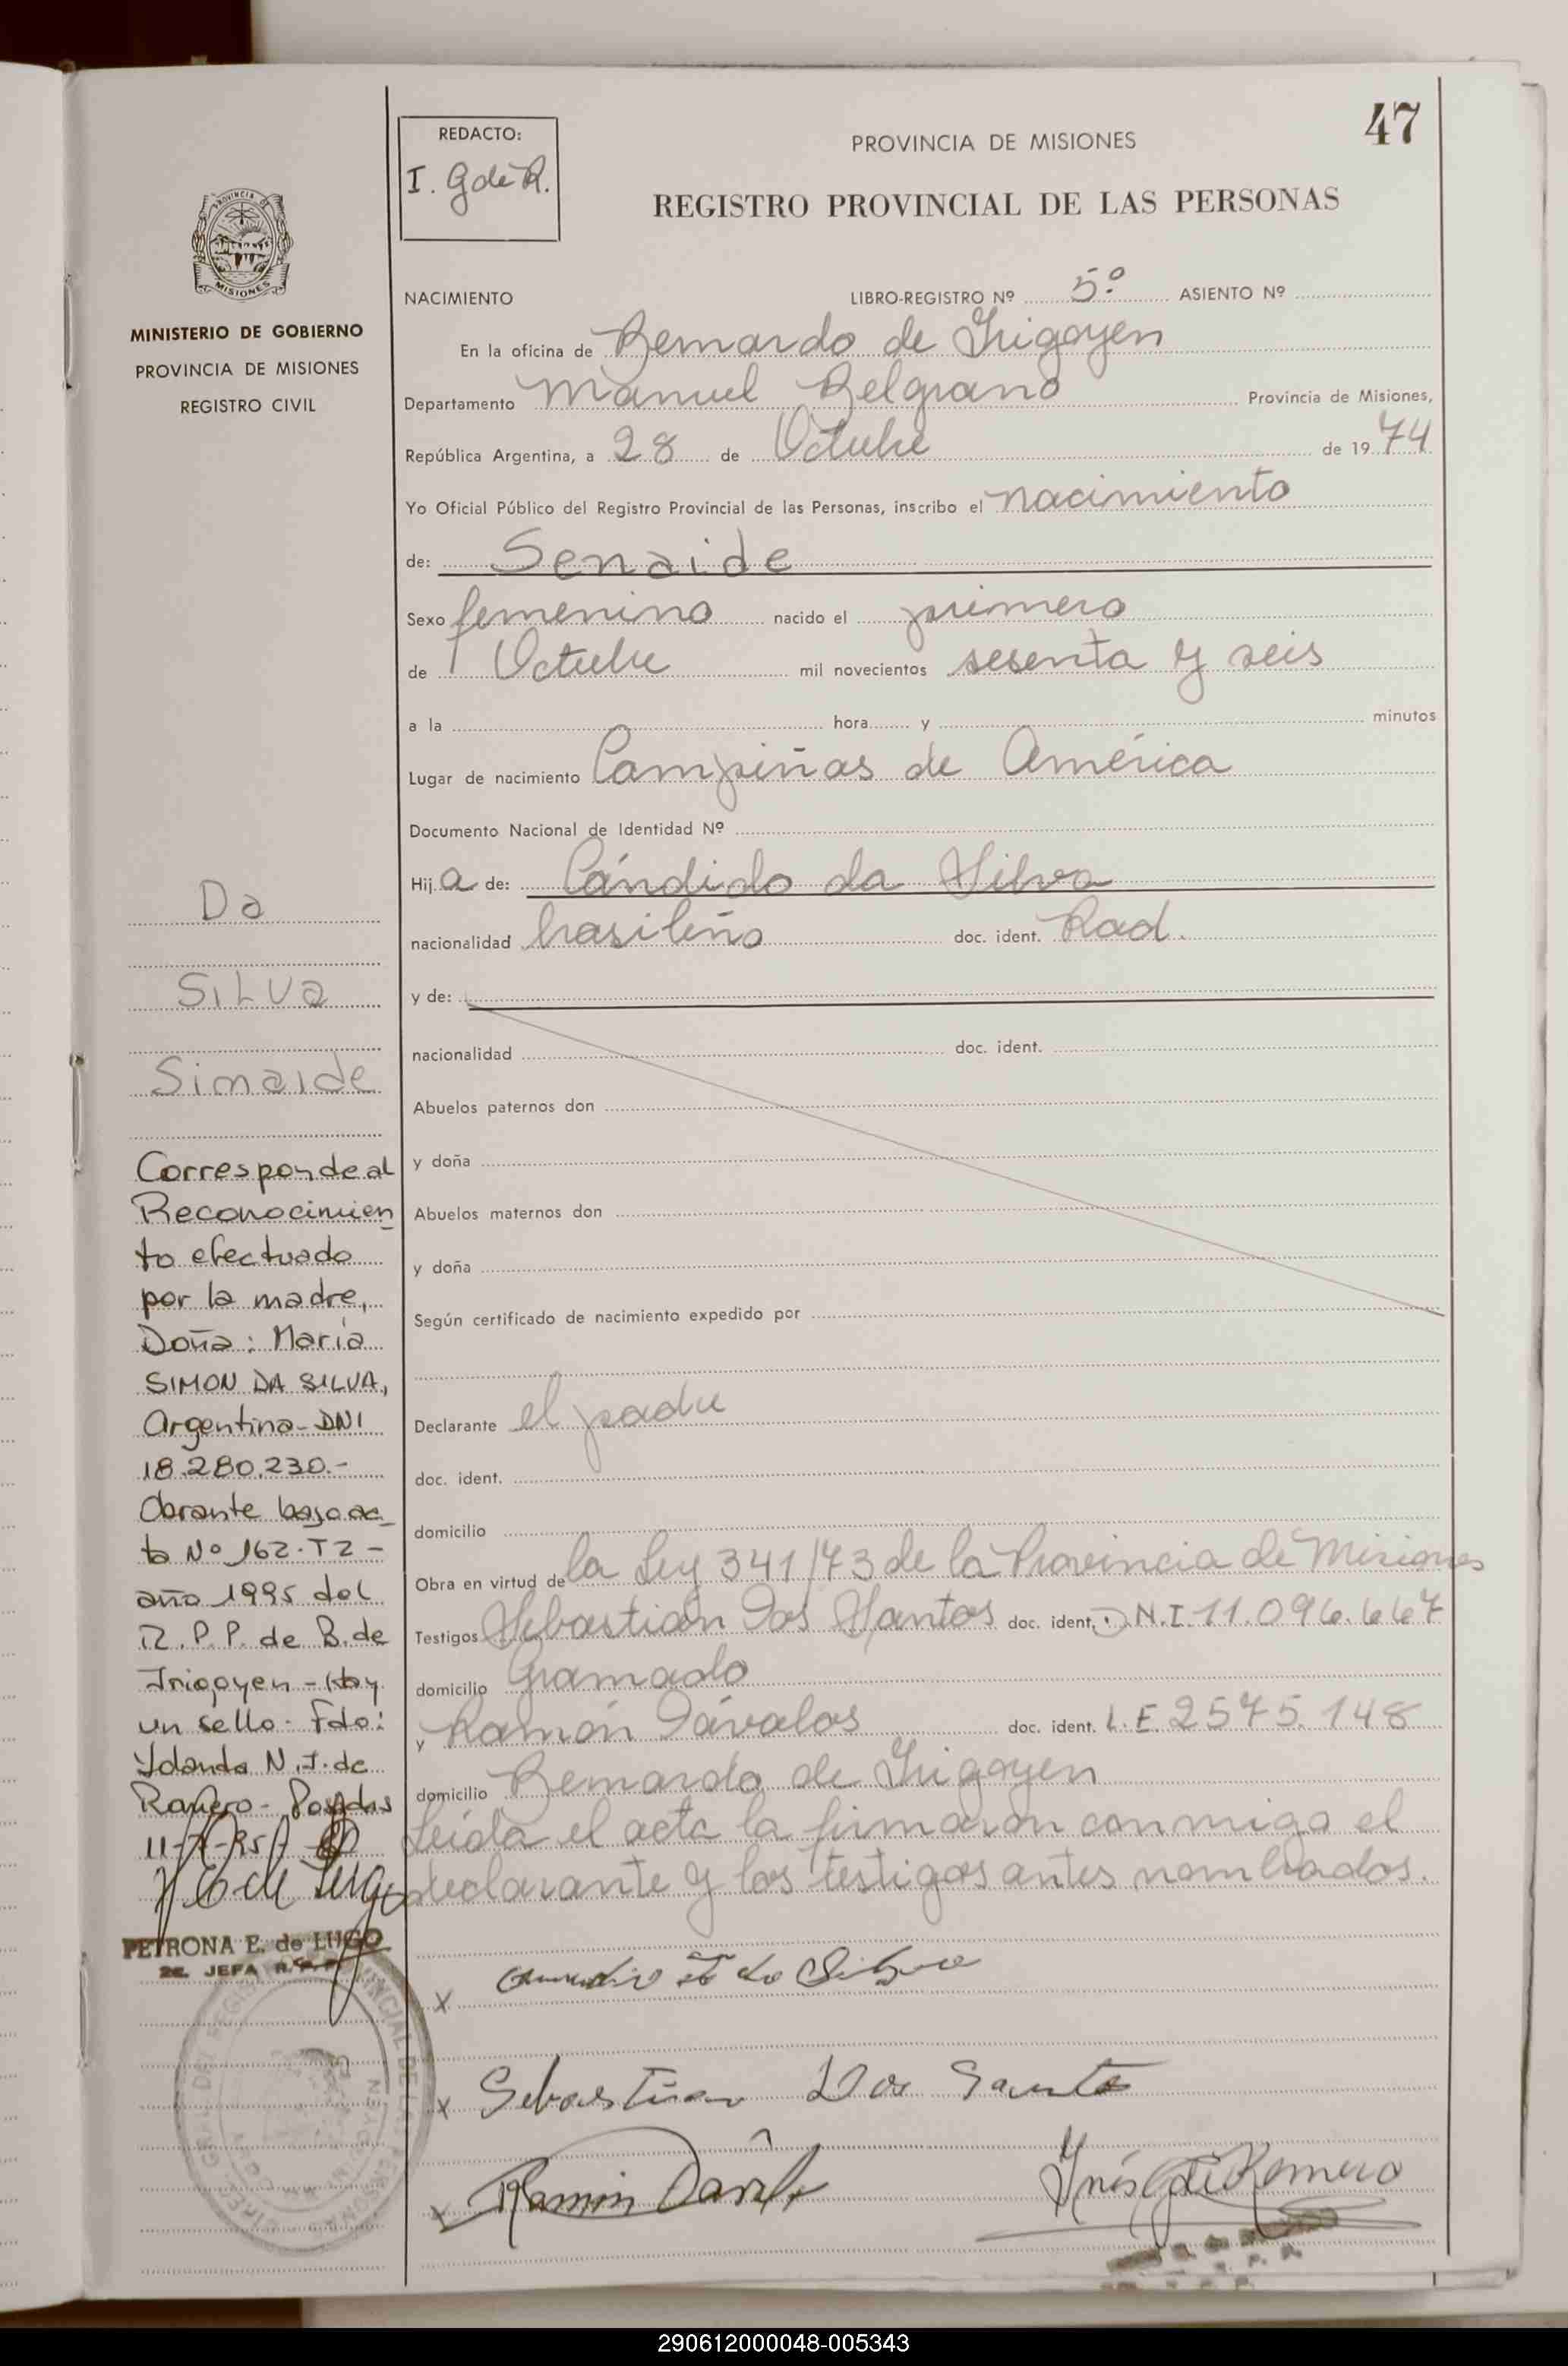 47
REDACTO:
I. G de R.
PROVINCIA DE MISIONES
REGISTRO PROVINCIAL DE LAS PERSONAS
MISIONES
MINISTERIO DE GOBIERNO
PROVINCIA DE MISIONES
REGISTRO CIVIL
NACIMIENTO LIBRO-REGISTRO Nº 5º ASIENTO Nº
En la oficina de Bernardo de Irigoyen
Departamento Manuel Belgrano Provincia de Misiones,
República Argentina, a 28 de Octubre de 1974
Yo Oficial Público del Registro Provincial de las Personas, inscribo el nacimiento
de: Senaide
Sexo femenino nacido el primero
de Octubre mil novecientos sesenta y seis
a la hora y minutos
Lugar de nacimiento Campiñas de América
Documento Nacional de Identidad Nº
Hija de: Cándido da Silva
nacionalidad brasileño doc. ident. Rad.
y de:
nacionalidad doc. ident.
Abuelos paternos don
y doña
Abuelos maternos don
y doña
Según certificado de nacimiento expedido por
Declarante el padre
doc. ident.
domicilio
Obra en virtud de la Ley 341/73 de la Provincia de Misiones
Testigos Sebastián Dos Santos doc. ident. D.N.I. 11.096.667
domicilio Gramado
y Ramón Dávalos doc. ident. L.E. 2575.148
domicilio Bernardo de Irigoyen
Leída el acta la firmaron conmigo el
declarante y los testigos antes nombrados.
Da
SILVa
Simaide
Corresponde al
Reconocimien
to efectuado
por la madre,
Doña: María
SIMON DA SILVA,
Argentina-DNI
18.280.230.-
Obrante bajo ac
ta Nº 162-T2-
año 1995 del
R.P.P. de B. de
Irigoyen - Hay
un sello - Fdo:
Yolanda N.J. de
Romero - Posadas
PETRONA E. de LUGO
2a. JEFA R.P.P.
x da Silva
x Sebastian Dos Santo
x Ramón Davalo
Inés G de Romero
290612000048-005343